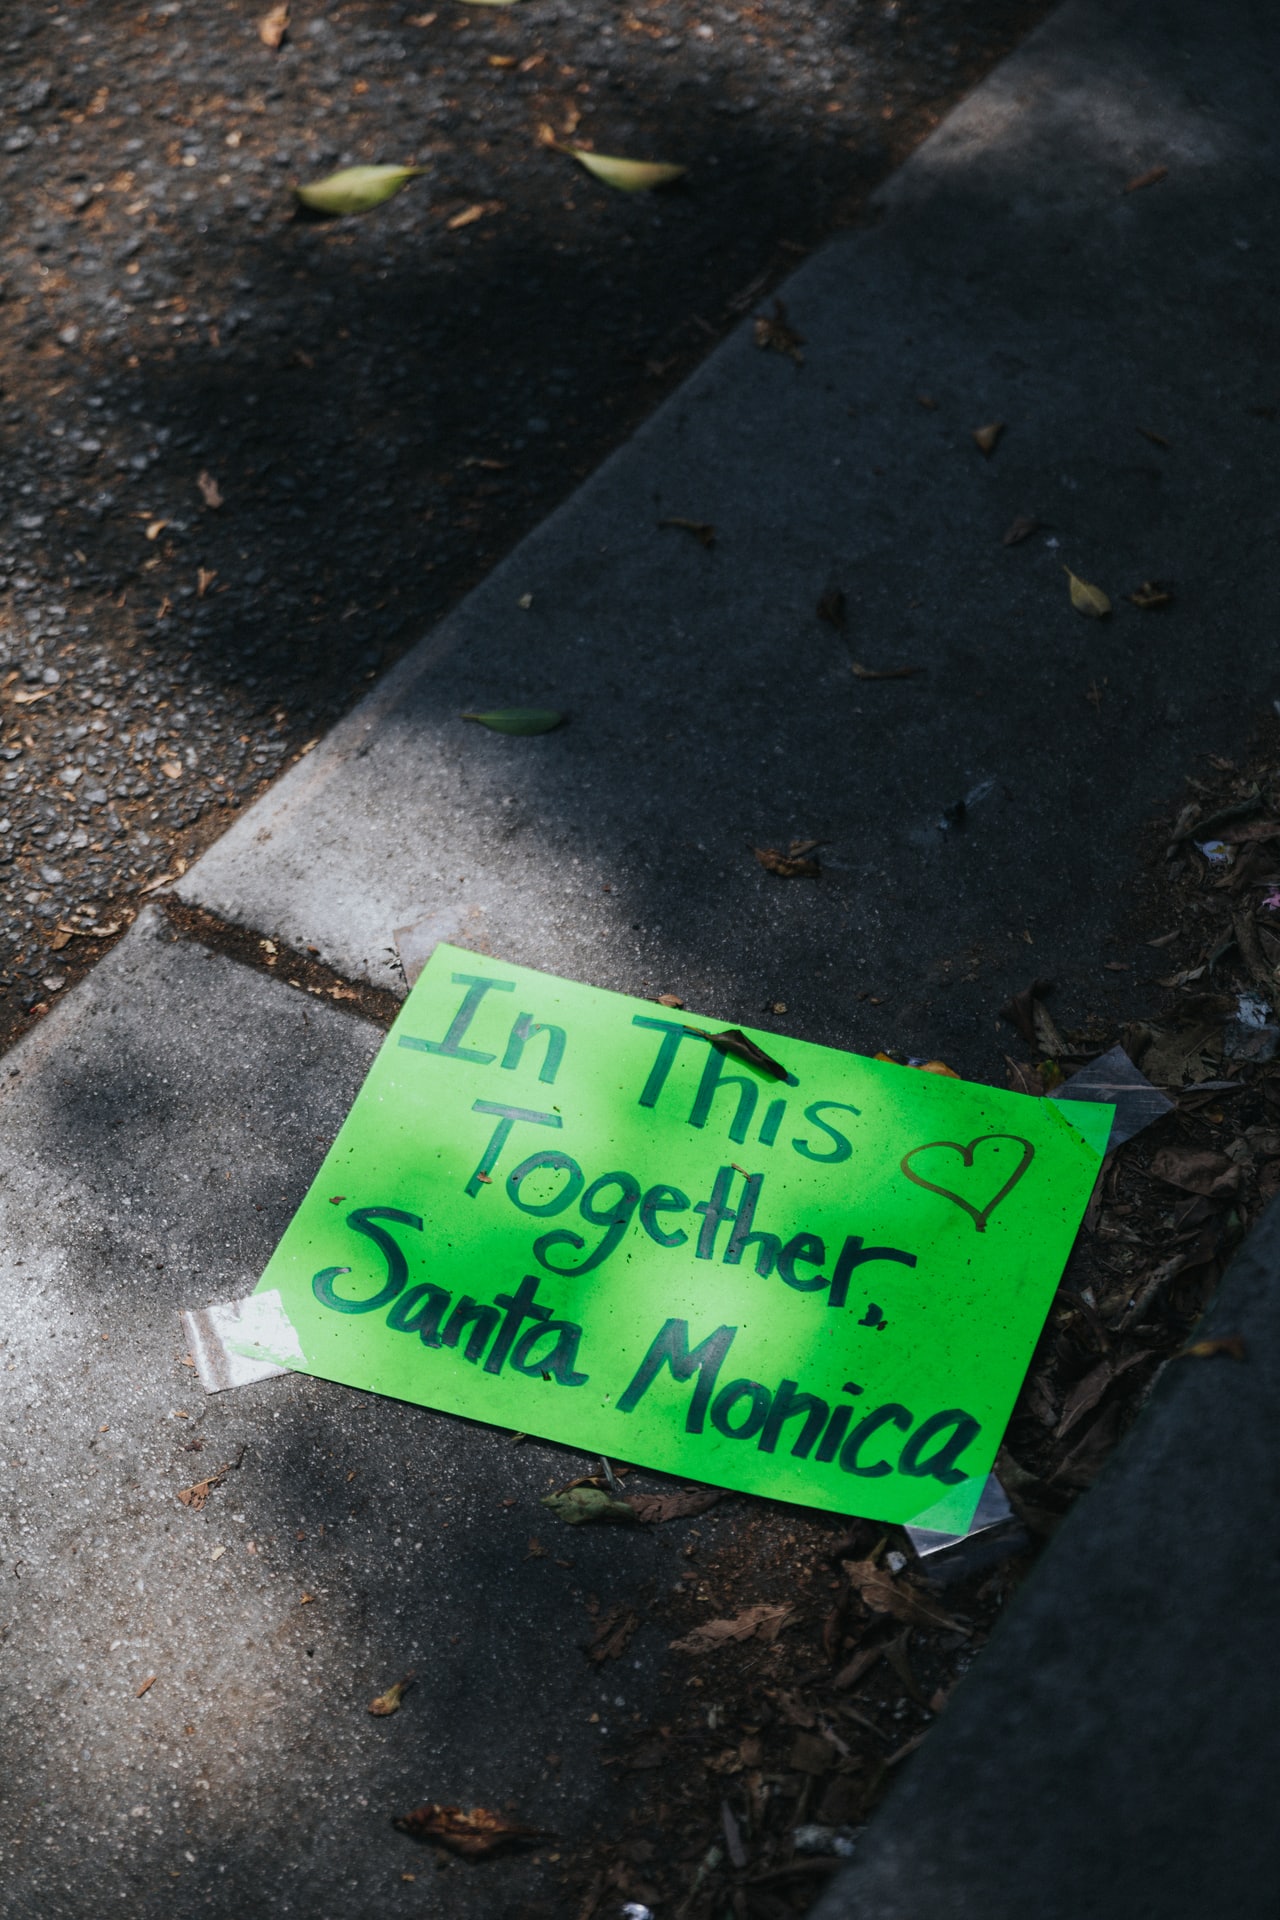 In This
Together,
Santa Monica